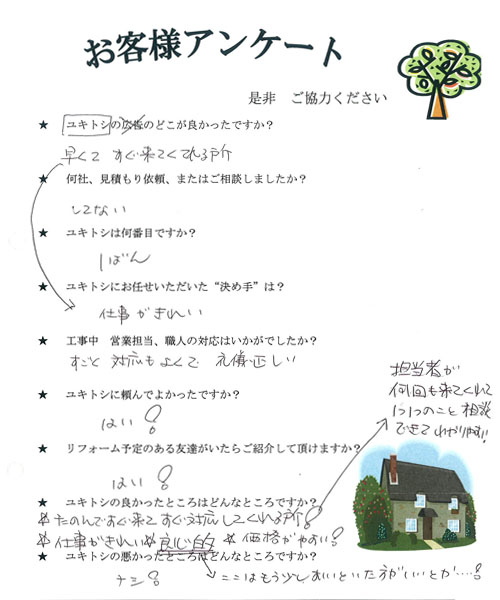 お客様アンケート
是非 ご協力ください
★ ユキトシの広告のどこが良かったですか?
早くて すぐ来てくれる所
★ 何社、見積もり依頼、またはご相談しましたか?
してない
★ ユキトシは何番目ですか?
1ばん
★ ユキトシにお任せいただいた“決め手”は?
仕事がきれい
★ 工事中 営業担当、職人の対応はいかがでしたか?
すごく 対応もよくて 礼儀正しい
★ ユキトシに頼んでよかったですか?
はい!
★ リフォーム予定のある友達がいたらご紹介して頂けますか?
はい!
担当者が
何回も来てくれて
1つ1つのこと相談
できてわかりやすい!
★ ユキトシの良かったところはどんなところですか?
※たのんですぐ来てすぐ対応してくれる所!
※仕事がきれい※良心的 ※価格がやすい!
★ ユキトシの悪かったところはどんなところですか?
ナシ!
ここはもう少しああいといた方がいいとか……!